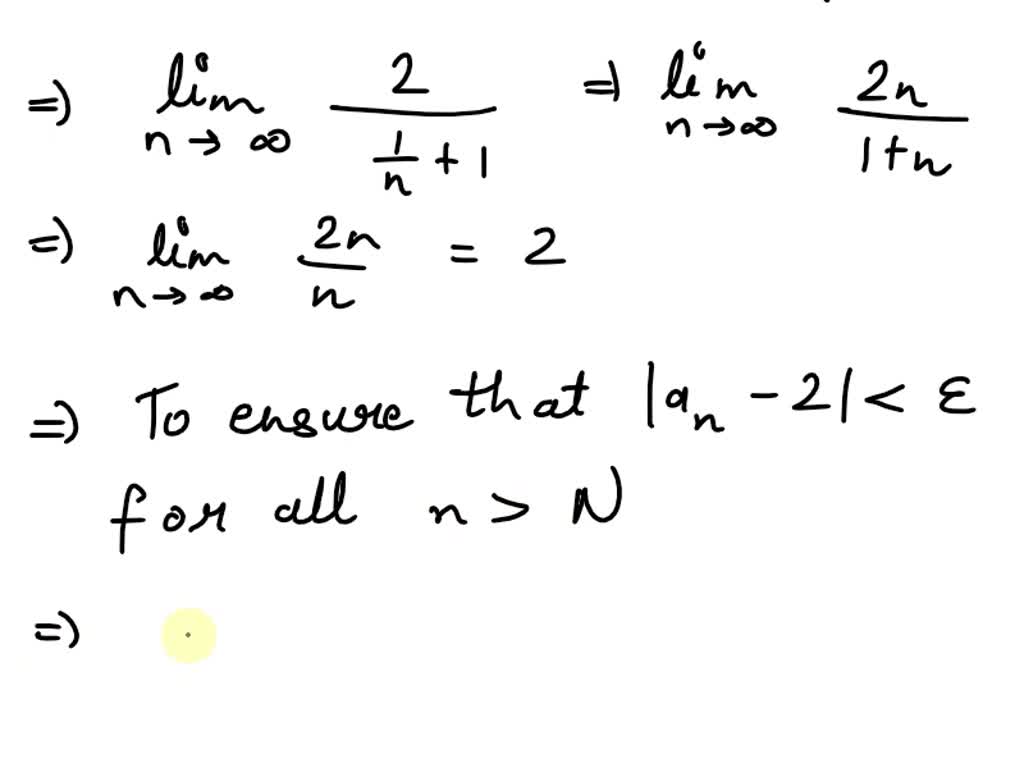 =) lim n→∞ 2/(1/n + 1) =) lim n→∞ 2n/(1+n)
=) lim n→∞ 2n/n = 2
=) To ensure that |an - 2| < ε
for all n > N
=)